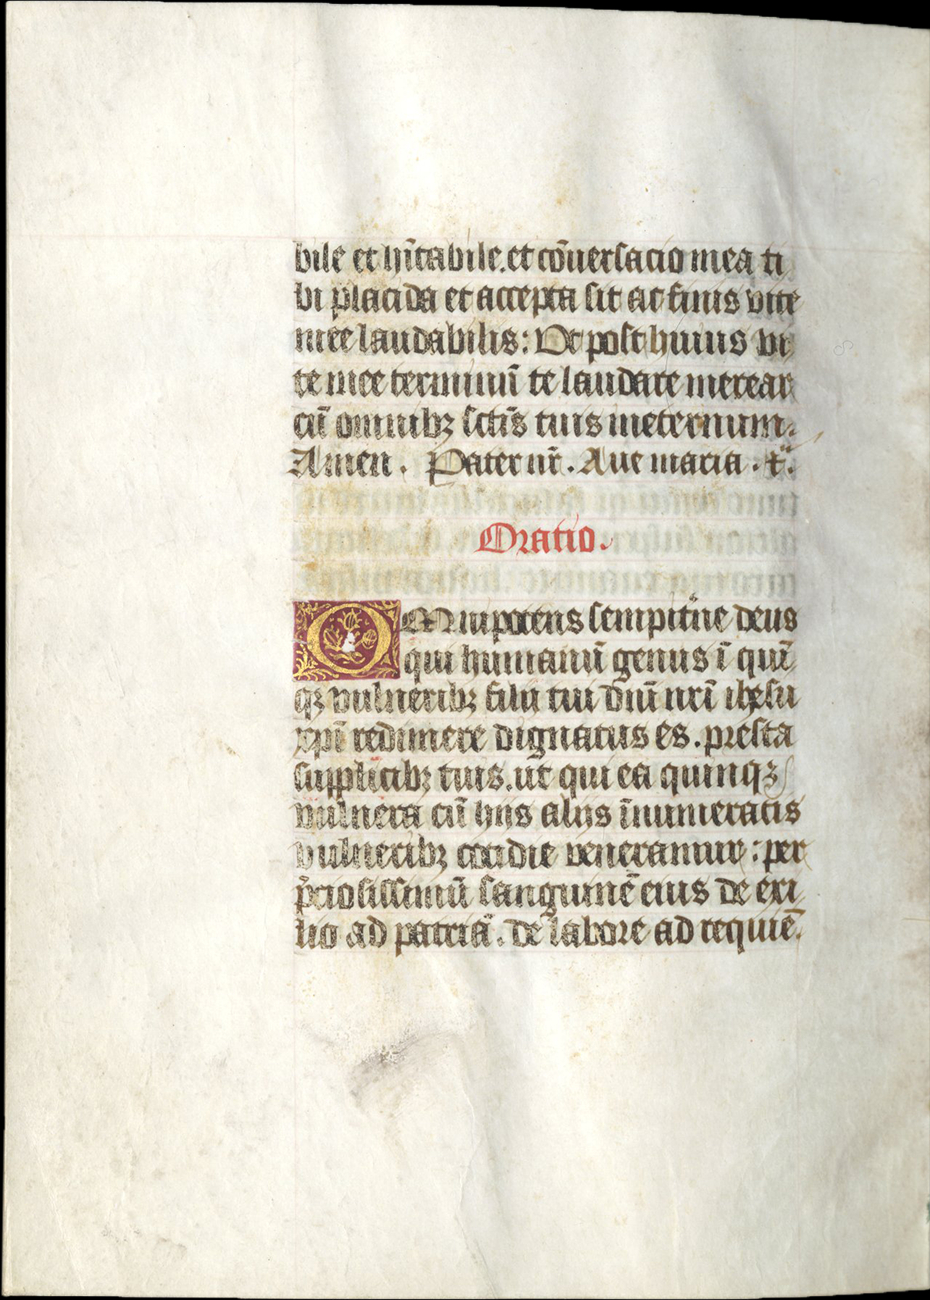 bile et hūtabile. et cōuersacio mea ti
bi placida et accepta sit ac finis vite
mee laudabilis: Vt post huius vi
te mee terminū te laudare merear
cū omnibꝫ sctīs tuis ineternum.
Amen. Pater nr̄. Aue maria. ⁊c̄.
Oratio.
OMnipotens sempitn̄e deus
qui humanū genus ī quī
qꝫ vulneribꝫ filii tui dn̄i nr̄i ihesu
xpī redimere dignatus es. presta
supplicibꝫ tuis. ut qui ea quinqꝫ
vulnera cū hijs alijs īnumeratis
vulneribꝫ cotidie veneramur: per
p̄ciosissimū sanguinē eius de exi
lio ad patriā. de labore ad requiē.